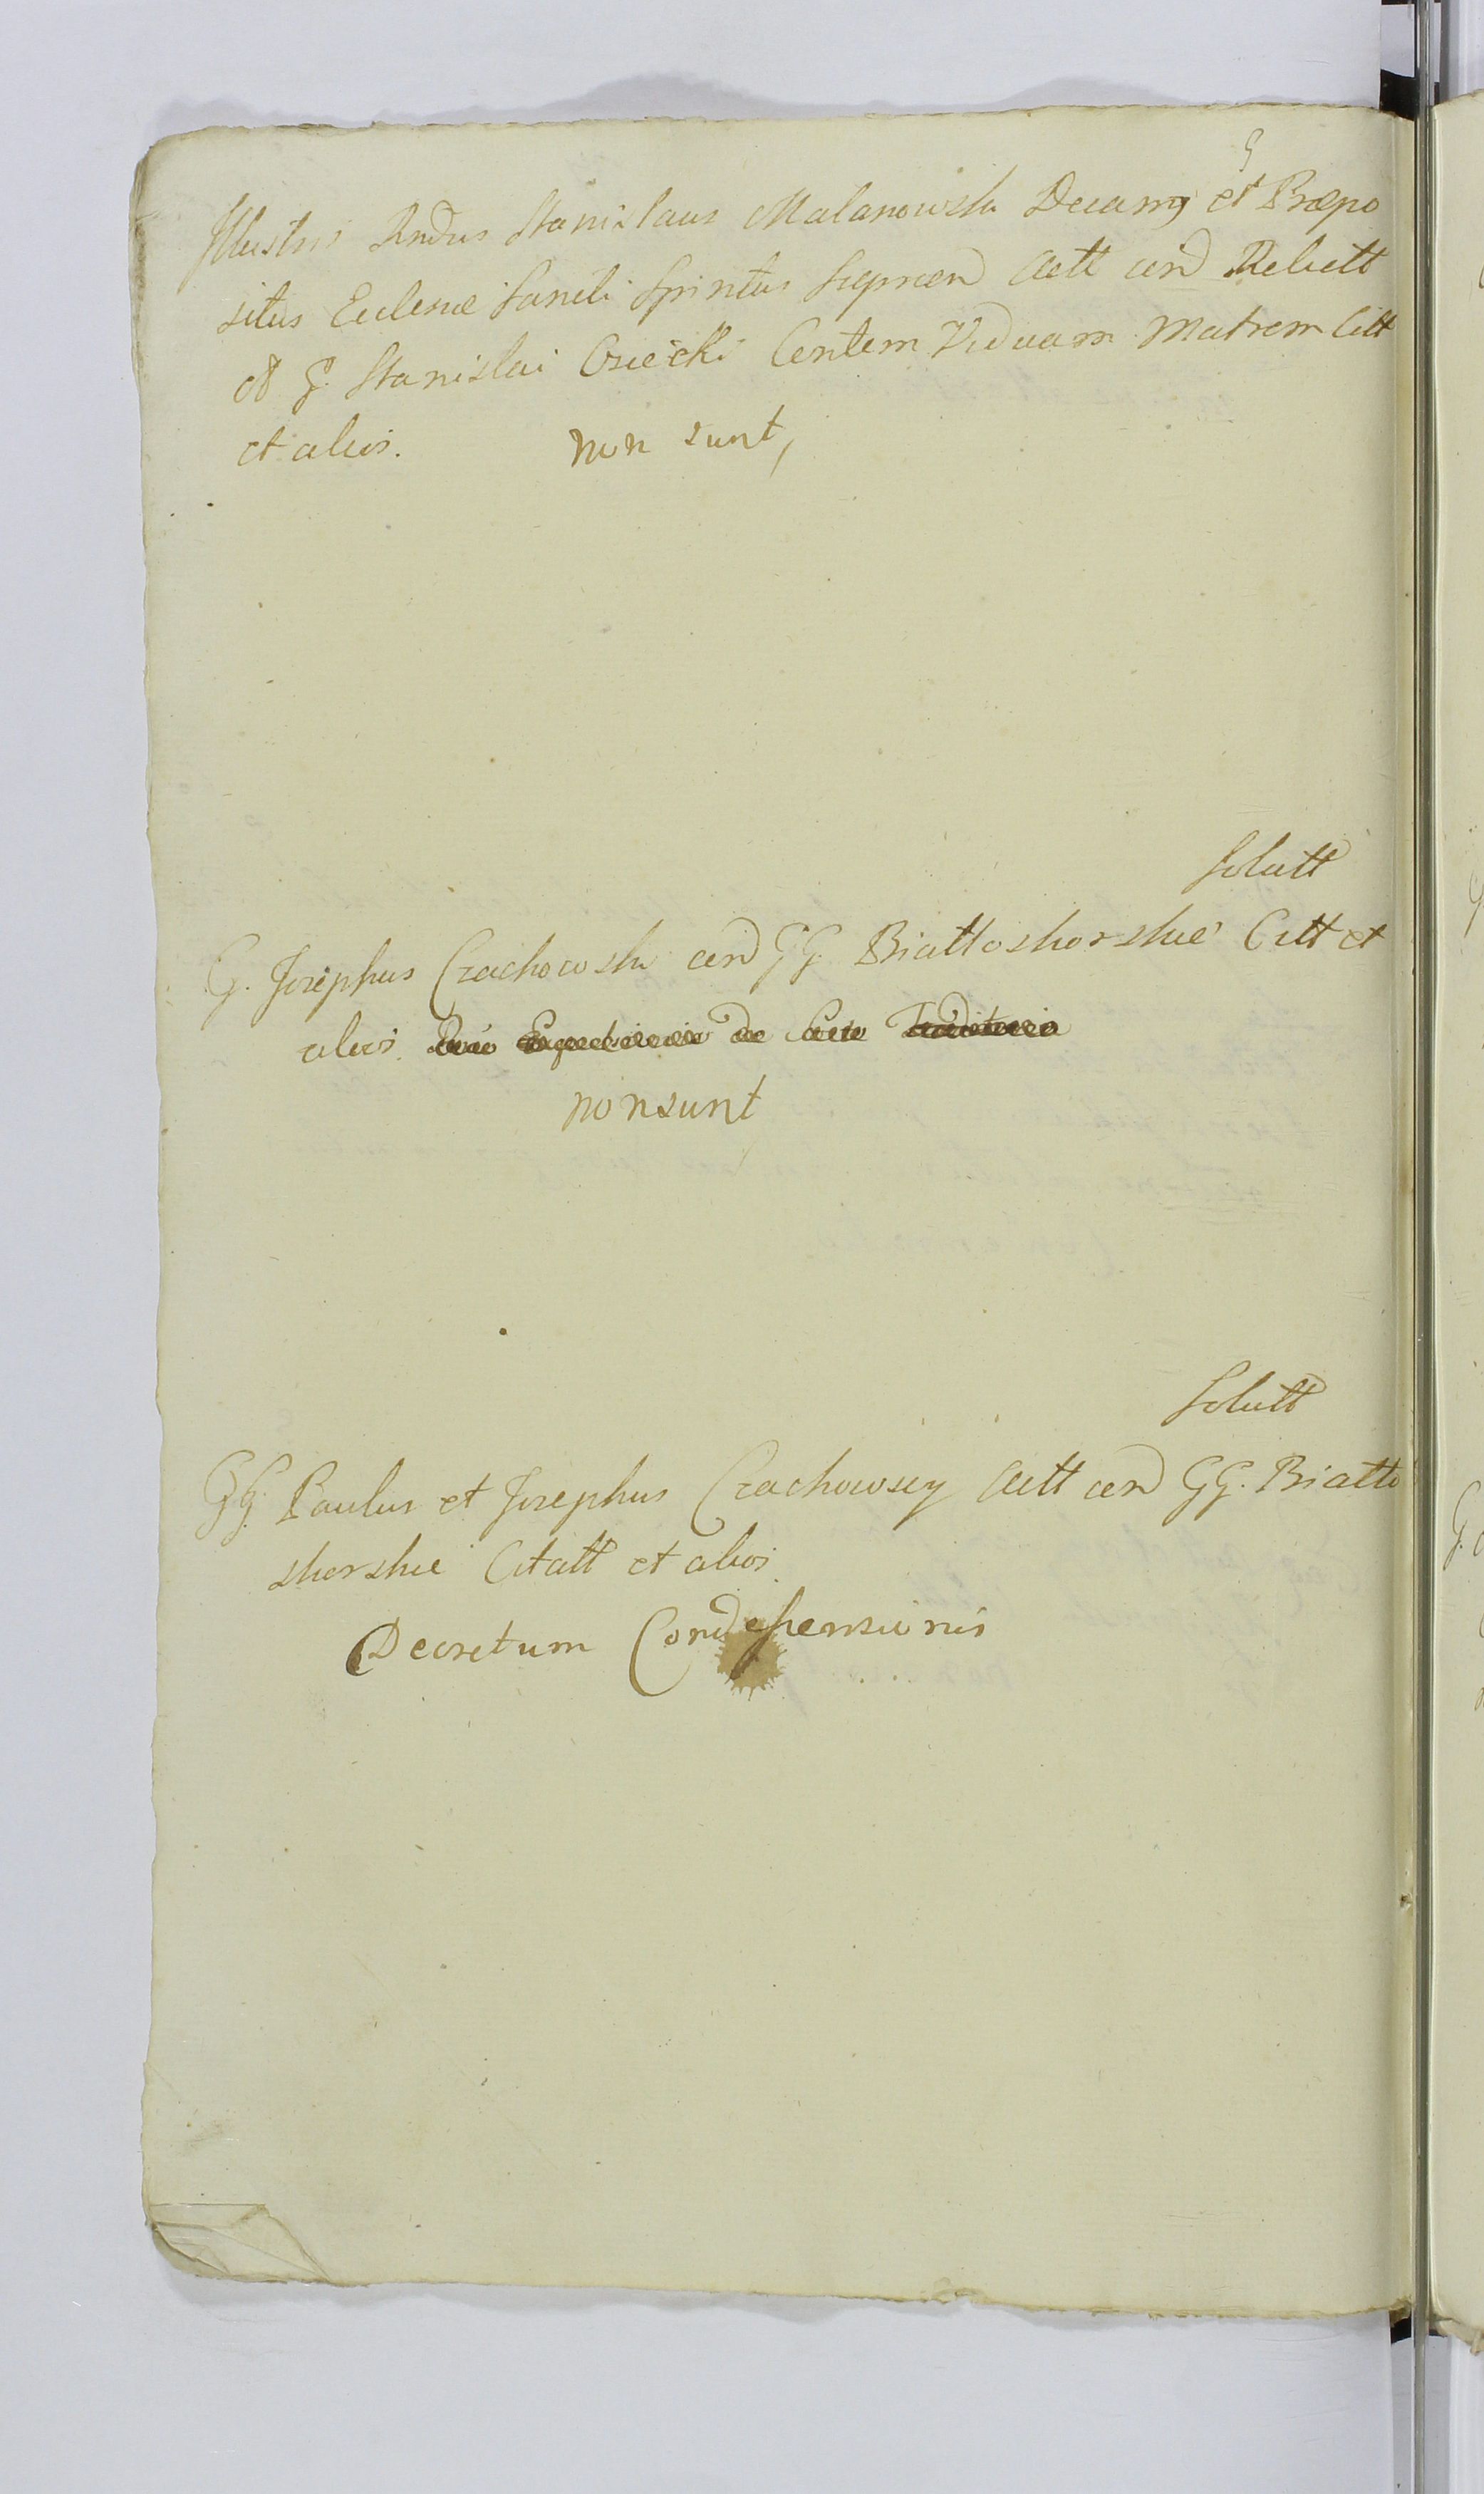 Illustris Rndus Stanislaus Malanowski Decanus et Præpo
situs Ecclesiæ Sancti Spiritus Act cend Relict
G. Stanislai Osiecki Centem Viduam Matrem Citt
et alios. non sunt,
Solutt
G. Josephus Czachowski cend GG. Biattoskorskie Citt et
alios. de
non sunt
Solutt
GG. Paulus et Josephus Czachowscy Actt cend GG. Biatto
skorskie Citatt et alios.
Decretum Condescensionis